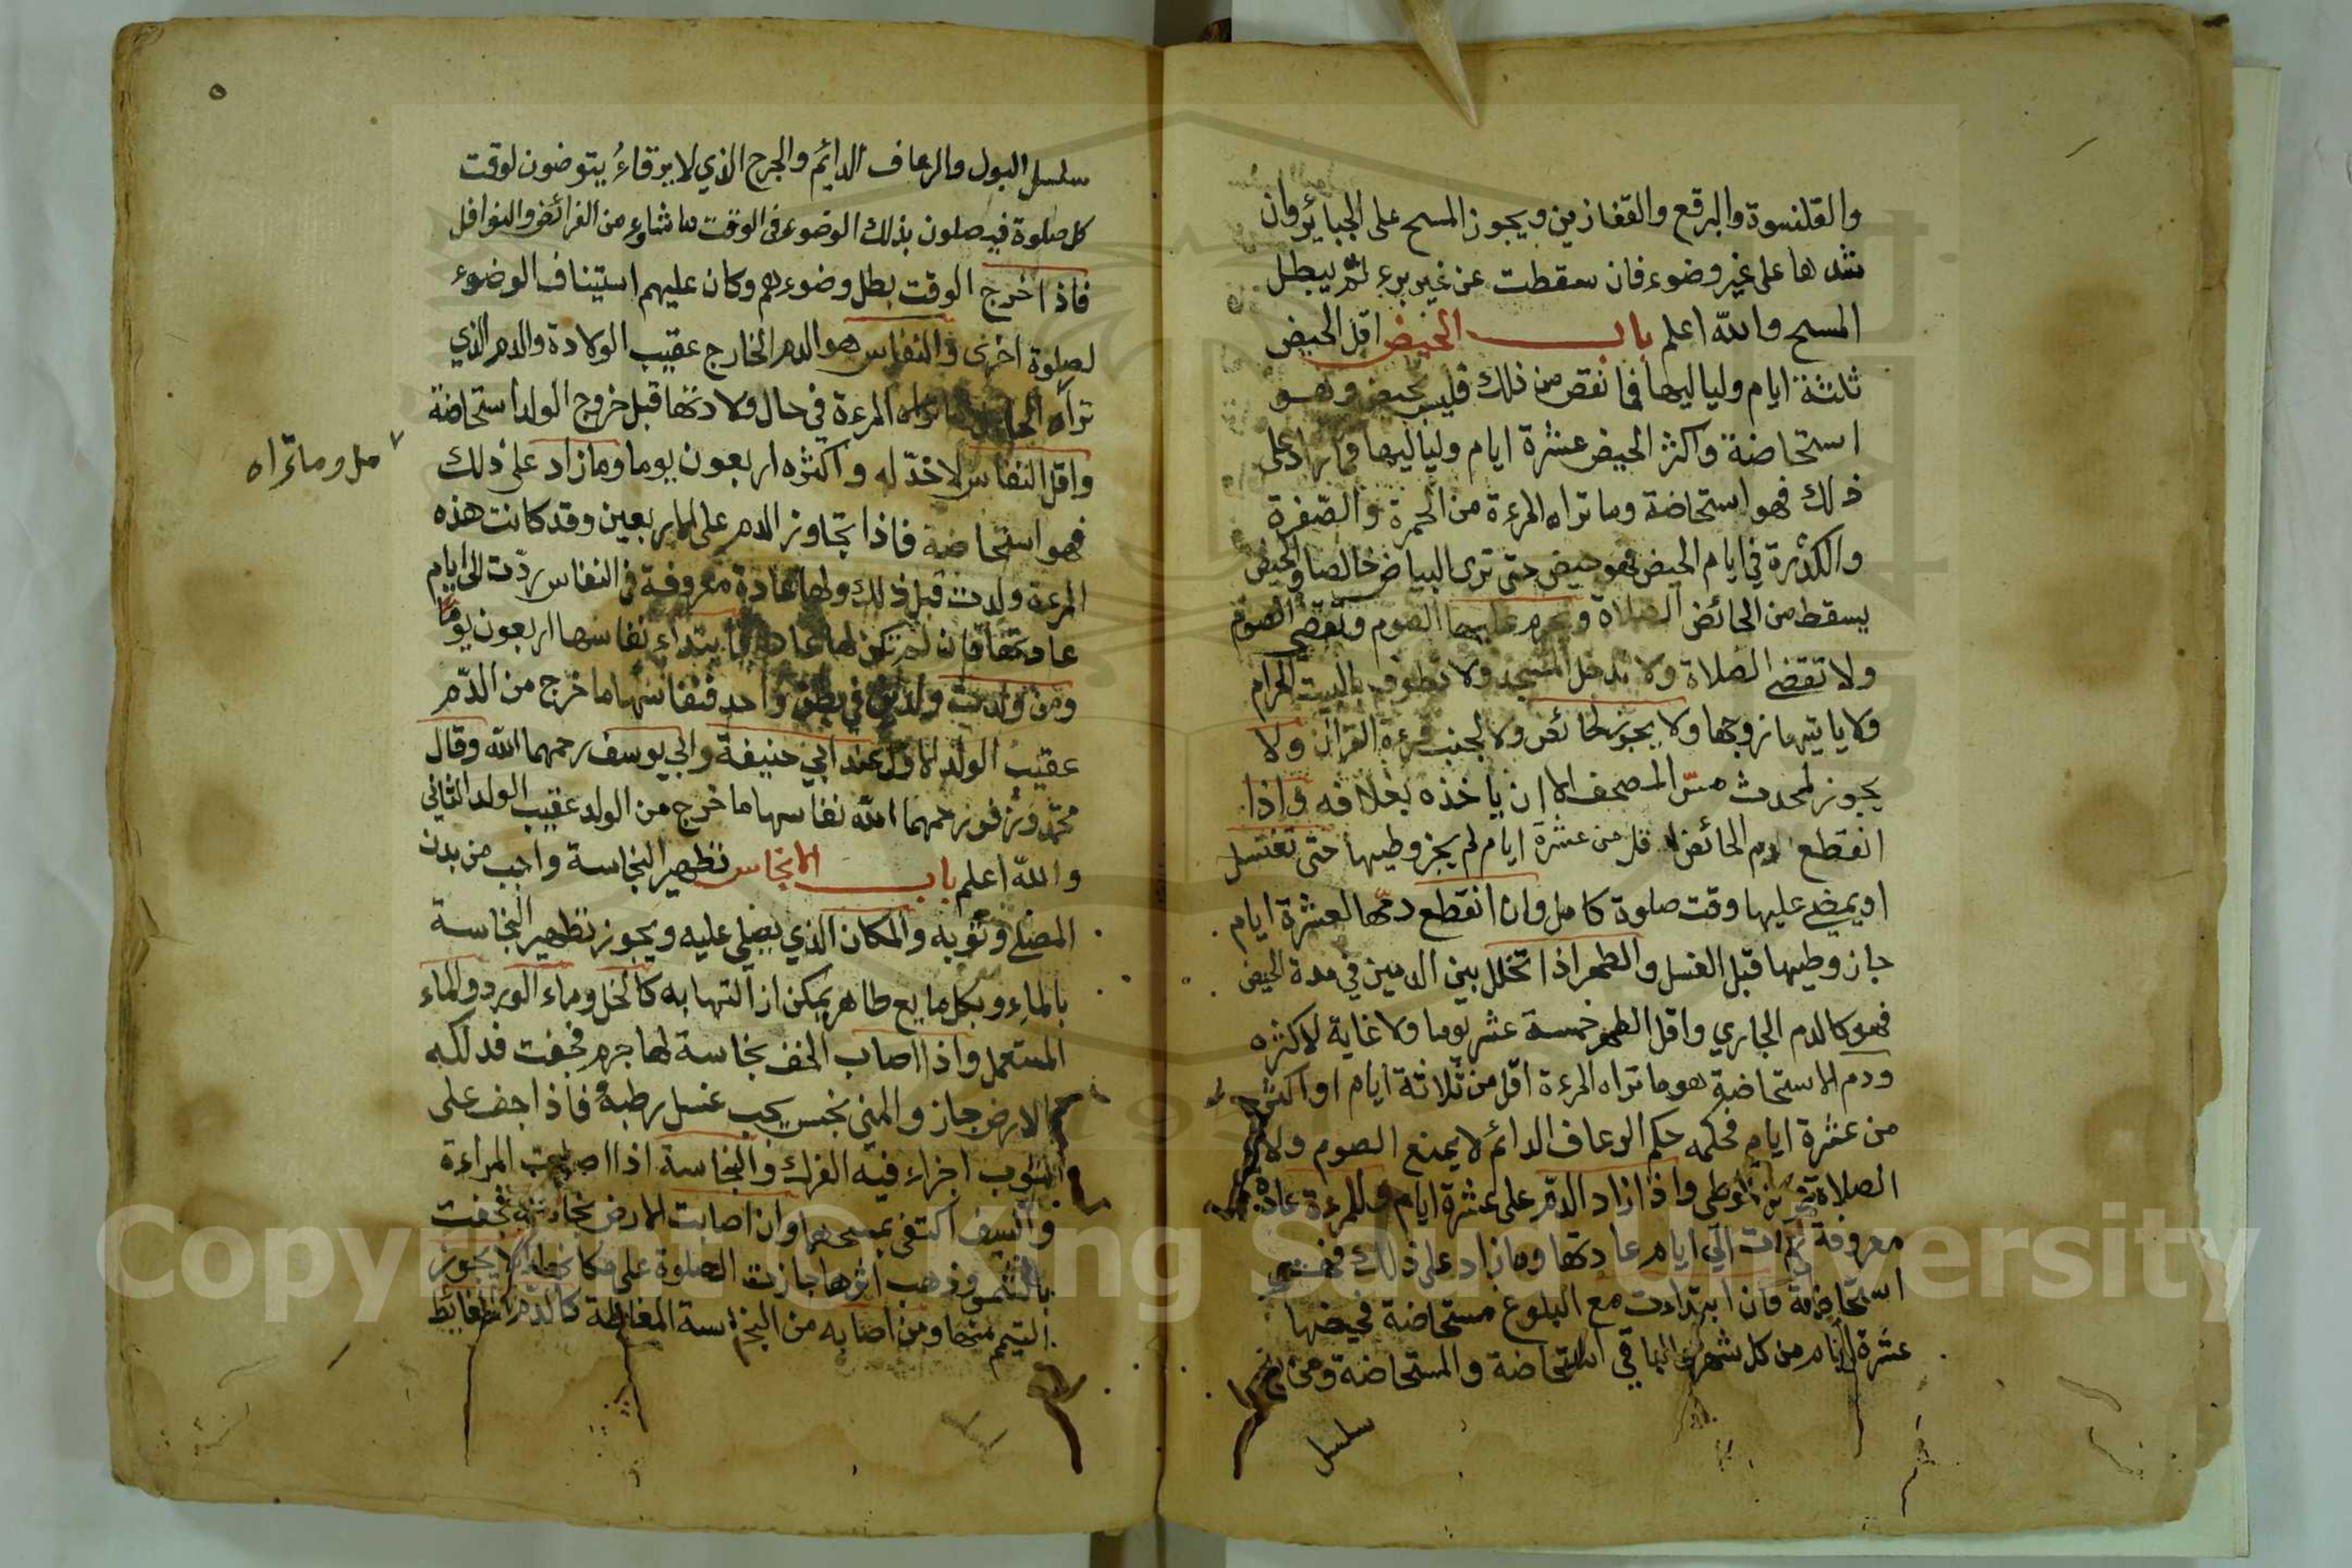 والقلنسوة والبرقع والقفازين ويجوز المسح على الجبائر وان
شدها على غير وضوء فان سقطت عن غير برء لم يبطل
المسح والله اعلم باب الحيض اقل الحيض
ثلثة ايام ولياليها فما نقص من ذلك فليس بحيض وهو
استحاضة واكثر الحيض عشرة ايام ولياليها فما زاد على
ذلك فهو استحاضة وما تراه المرءة من الحمرة والصفرة
والكدرة في ايام الحيض فهو حيض حتى ترى البياض خالصا والحيض
يسقط من الحائض الصلاة ويحرم عليها الصوم وتقضي الصوم
ولا تقضي الصلاة ولا تدخل المسجد ولا تطوف بالبيت الحرام
ولا ياتيها زوجها ولا يجوز لحائض ولا لجنب قرءة القران ولا
يجوز لمحدث مس المصحف الا ان ياخذه بغلافه واذا
انقطع دم الحائض لاقل من عشرة ايام لم يجز وطيها حتى تغتسل
او يمضي عليها وقت صلوة كامل وان انقطع دمها لعشرة ايام
جاز وطيها قبل الغسل والطهر اذا تخلل بين الدمين في مدة الحيض
فهو كالدم الجاري واقل الطهر خمسة عشر يوما ولا غاية لاكثره
ودم الاستحاضة هو ما تراه المرءة اقل من ثلاثة ايام او اكثر
من عشرة ايام فحكمه حكم الرعاف الدائم لا يمنع الصوم ولا
الصلاة ولا الوطي واذا زاد الدم على عشرة ايام وللمرءة عادة
معروفة ردت الي ايام عادتها وما زاد على ذلك فهو
استحاضة فان ابتداءت مع البلوغ مستحاضة فحيضها
عشرة ايام من كل شهر والباقي استحاضة والمستحاضة ومن به
سلسل
٥
سلسل البول والرعاف الدايم والجرح الذي لا يرقاء يتوضون لوقت
كل صلوة فيصلون بذلك الوضوء في الوقت ما شاوء من الفرائض والنوافل
فاذا خرج الوقت بطل وضوءهم وكان عليهم استيناف الوضوء
لصلوة اخرى والنفاس هو الدم الخارج عقيب الولادة والدم الذي
تراه الحامل وما تراه المرءة في حال ولادتها قبل خروج الولد استحاضة
مل وما تراه
واقل النفاس لا حد له واكثره اربعون يوما وما زاد على ذلك
فهو استحاضة فاذا تجاوز الدم على الاربعين وقد كانت هذه
المرءة ولدت قبل ذلك ولها عادة معروفة في النفاس ردت الى ايام
عادتها فان لم تكن لها عادة فابتداء نفاسها اربعون يوما
ومن ولدت ولدين في بطن واحد فنفاسها ما خرج من الدم
عقيب الولد الاول عند ابي حنيفة وابي يوسف رحمهما الله وقال
محمد وزفر رحمهما الله نفاسها ما خرج من الولد عقيب الولد الثاني
والله اعلم باب الانجاس تطهير النجاسة واجب من بدن
المصلي وثوبه والمكان الذي يصلي عليه ويجوز تطهير النجاسة
بالماء وبكل مايع طاهر يمكن ازالتها به كالخل وماء الورد والماء
المستعمل واذا اصاب الخف نجاسة لها جرم فجفت فدلكه
بالارض جاز والمني نجس يجب غسل رطبه فاذا جف على
الثوب اجزاء فيه الفرك والنجاسة اذا اصابت المراءة
والسيف اكتفى بمسحهما وان اصابت الارض نجاسة فجفت
بالشمس وذهب اثرها جازت الصلوة على مكانها ولا يجوز
التيمم منها ومن اصابه من النجاسة المغلظة كالدم والغايط